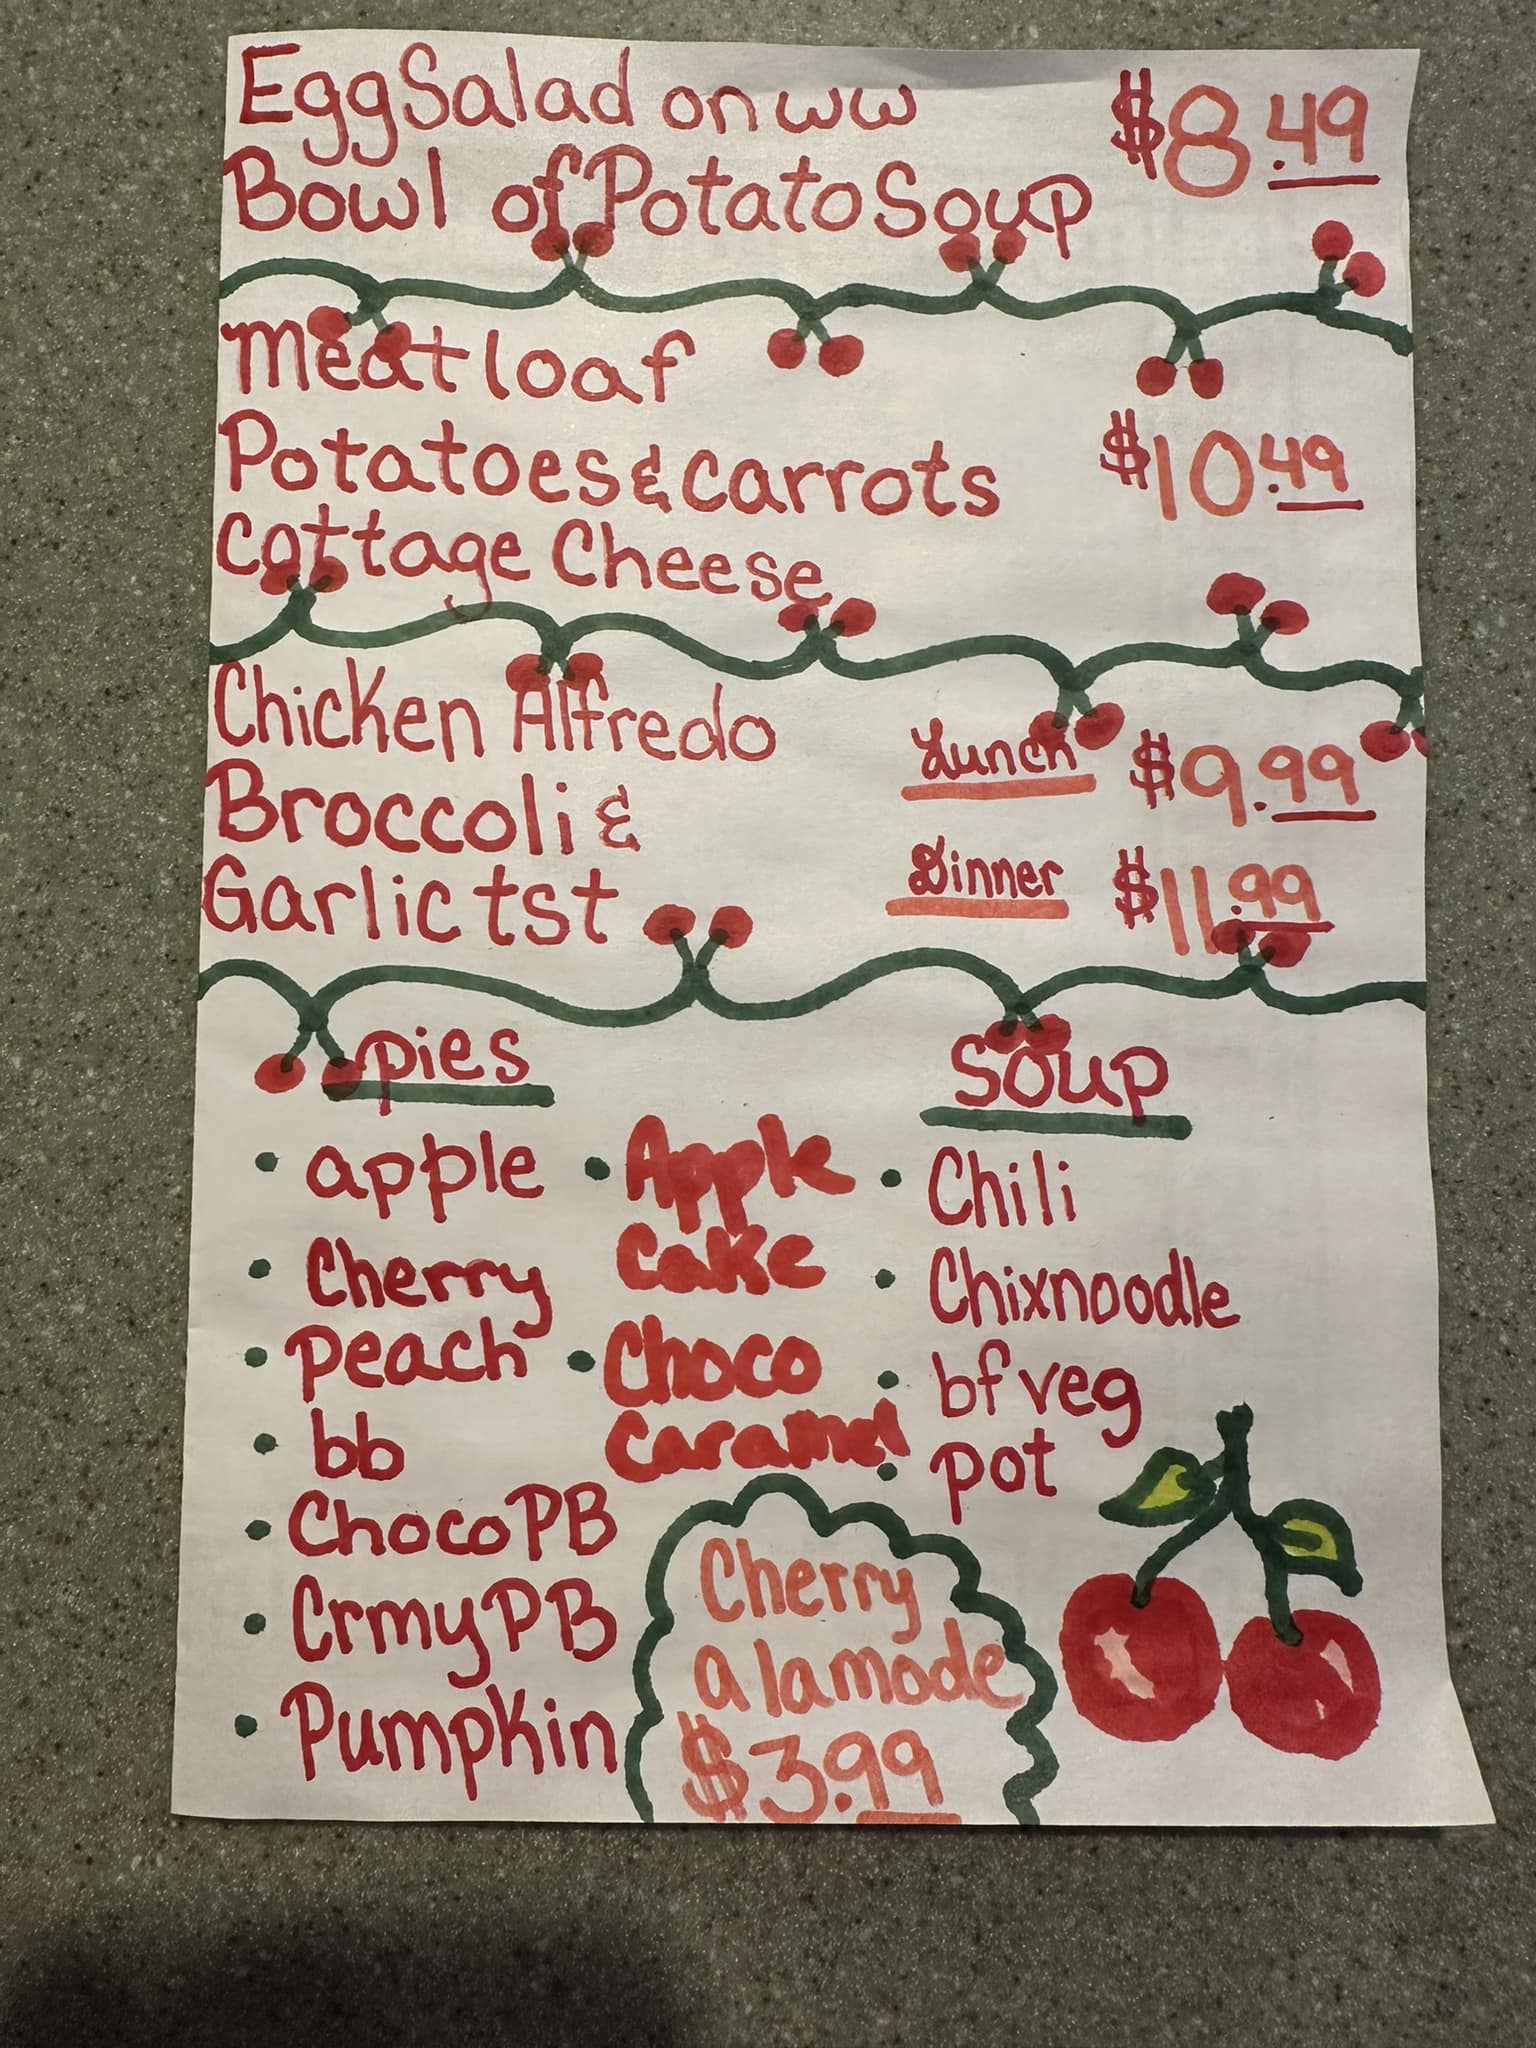 Egg Salad on ww
$8.49
Bowl of Potato Soup
Meatloaf
Potatoes & Carrots
$10.49
Cottage Cheese
Chicken Alfredo
Lunch $9.99
Broccoli &
Garlic tst
Dinner $11.99
pies
• apple
• Cherry
• peach
• bb
• Choco PB
• Crmy PB
• Pumpkin
• Apple
Cake
• Choco
Caramel
Soup
• Chili
• Chixnoodle
• bf veg
• pot
Cherry
a lamode
$3.99